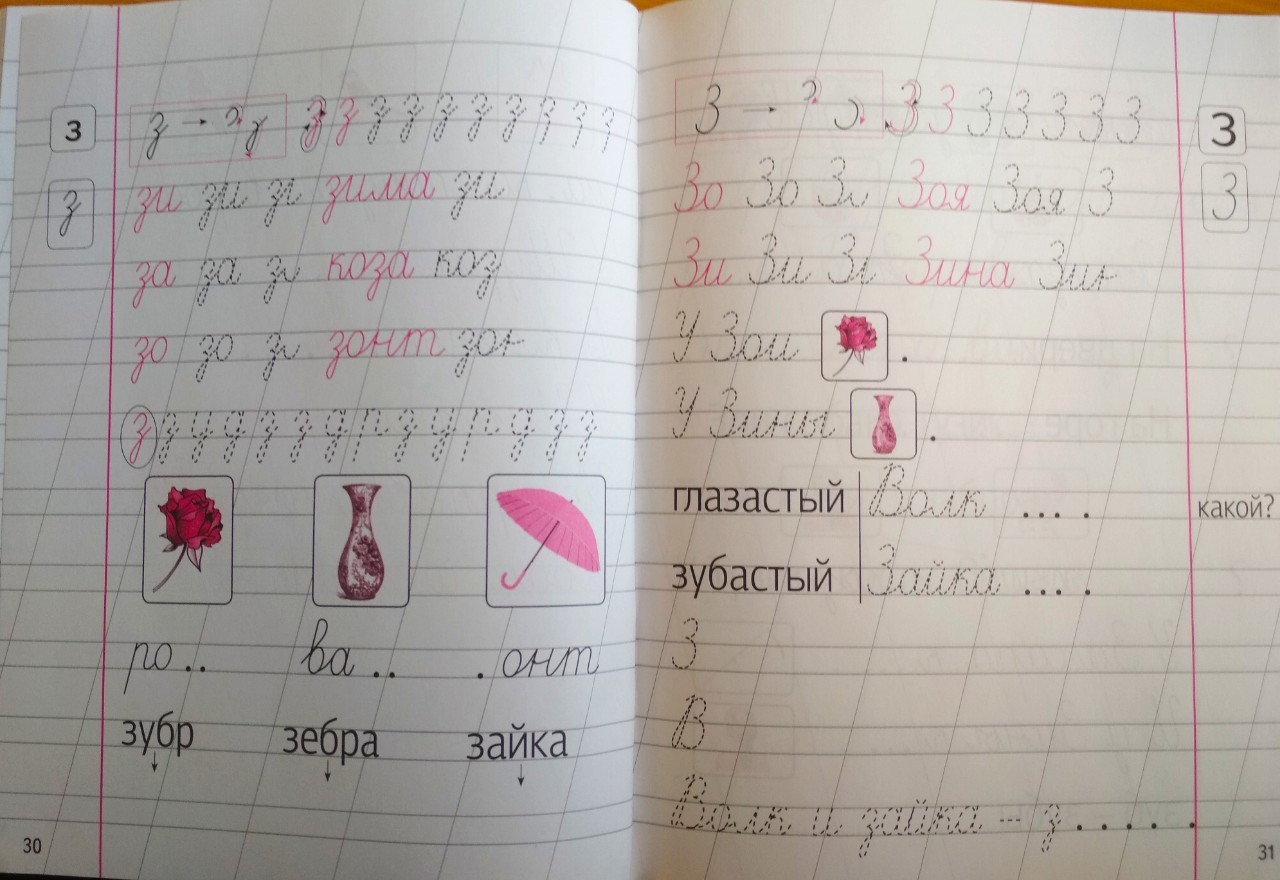 з
з → з з з з з з з з з з
з
зи зи зі зима зи
за за зі коза коз
зо зо зі зонт зон
з з у д з з д р з у р д з з
ро.. ва.. .онт
зубр зебра зайка
30
З → З З З З З З З З
З
З
Зо Зо Зі Зоя Зоя З
Зи Зи Зі Зина Зин
У Зои .
У Зины .
глазастый Волк ... .
какой?
зубастый Зайка ... .
З
В
Волк и зайка – з.....
31